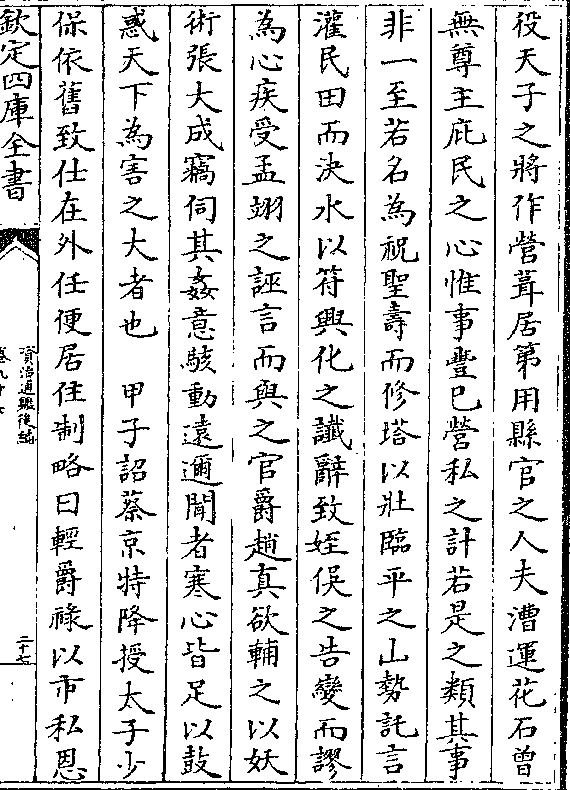 役天子之將作營葺居第用縣官之人夫漕運花石曾
無尊主庇民之心惟事豐已營私之計若是之類其事
非一至若名為祝聖壽而修塔以壯臨平之山勢託言
灌民田而決水以符興化之讖辭致姪俁之告變而謬
為心疾受孟翊之誣言而與之官爵趙真欲輔之以妖
術張大成竊伺其姦意駭動遠邇聞者寒心皆足以鼓
惑天下為害之大者也　甲子詔蔡京特降授太子少
保依舊致仕在外任便居住制略曰輕爵祿以市私恩
欽定四庫全書
資治通鑑後編
二十七